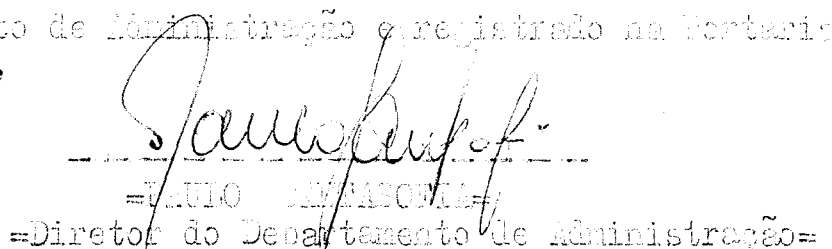 to de Administração e registrado na Portaria
=PAULO
=Diretor do Departamento de Administração=